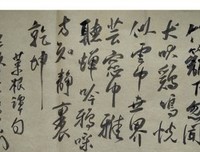 竹籬下
犬吠鷄鳴恍
似雲中世界
芸窓中雅
聽蟬吟鴉噪
方知静裏
乾坤
菜根譚句